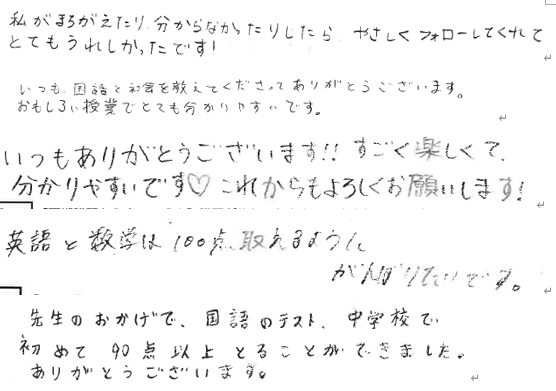 私がまちがえたり、分からなかったりしたら、やさしくフォローしてくれて
とてもうれしかったです!
いつも、国語と社会を教えてくださってありがとうございます。
おもしろい授業でとても分かりやすいです。
いつもありがとうございます!! すごく楽しくて、
分かりやすいです♡ これからもよろしくお願いします!
英語と数学は100点取えるように
がんばりたいです。
先生のおかげで、国語のテスト、中学校で
初めて90点以上とることができました。
ありがとうございます。